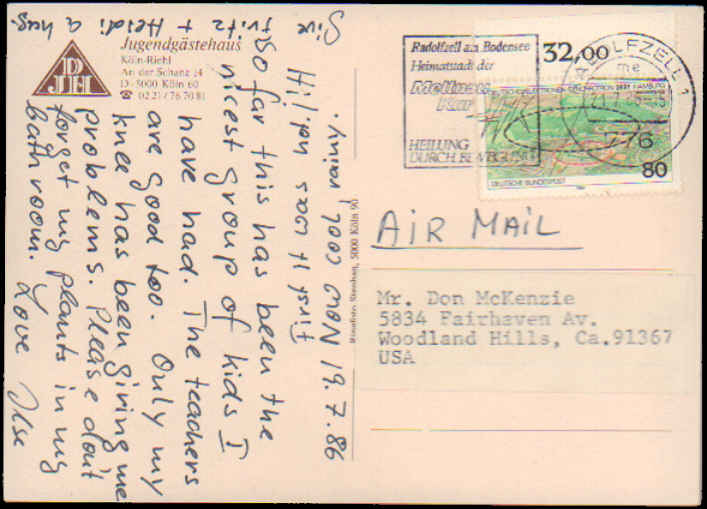 Jugendgästehaus
Köln-Riehl
An der Schanz 14
D-5000 Köln 60
☎ 02 21 / 76 70 81
DJH
Hi! you 19.7.86
First it was hot, now cool, rainy.
So far this has been the
nicest group of kids I
have had. The teachers
are good too. Only my
knee has been giving me
problems. Please don't
forget my plants in my
bathroom. Love Ilse
Give
Fritz + Heidi a hug.
5000 Köln 90
Radolfzell am Bodensee
Heimatstadt der
Mettnau
Kur
HEILUNG
DURCH BEWEGUNG
32,00
RADOLFZELL 1
776
80
DEUTSCHE BUNDESPOST
AIR MAIL
Mr. Don McKenzie
5834 Fairhaven Av.
Woodland Hills, Ca.91367
USA